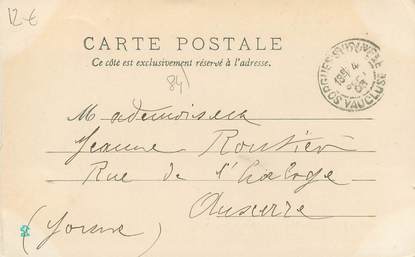 12 €
CARTE POSTALE
Ce côté est exclusivement réservé à l'adresse.
84
SORGUES-SUR-L'OUVÈZE
VAUCLUSE
Mademoiselle
Jeanne Routier
Rue de l'horloge
Auxerre
(Yonne)